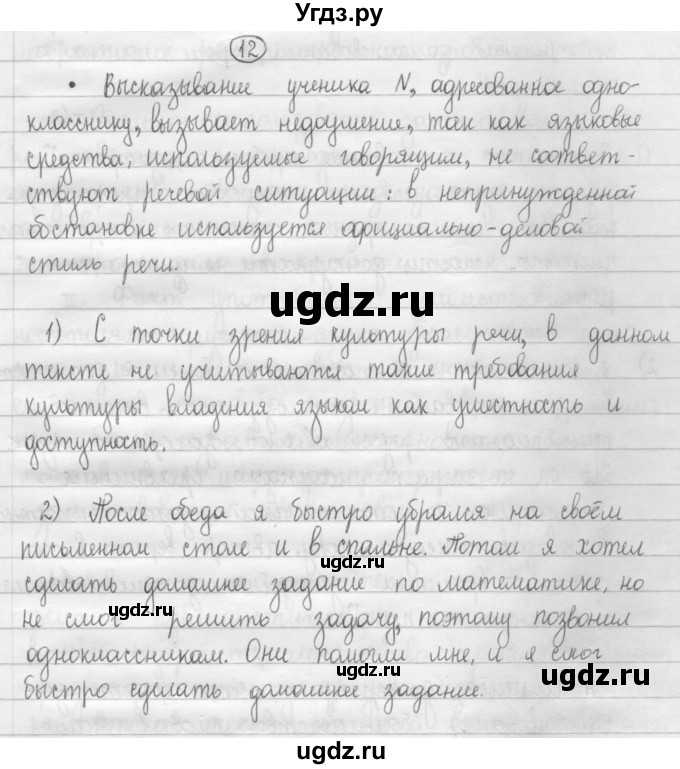 Угдз.ру
12
• Высказывание ученика N, адресованное одно-
класснику, вызывает недоумение, так как языковые
средства, используемые говорящим, не соответ-
ствуют речевой ситуации: в непринужденной
обстановке используется официально-деловой
стиль речи.
ugdz.ru
1) С точки зрения культуры речи, в данном
тексте не учитываются такие требования
культуры владения языком как уместность и
доступность.
ugdz.ru
2) После обеда я быстро убрался на своём
письменном столе и в спальне. Потом я хотел
сделать домашнее задание по математике, но
ugdz.ru
не смог решить задачу, поэтому позвонил
одноклассникам. Они помогли мне, и я смог
быстро сделать домашнее задание.
ugdz.ru
ugdz.ru
ugdz.ru